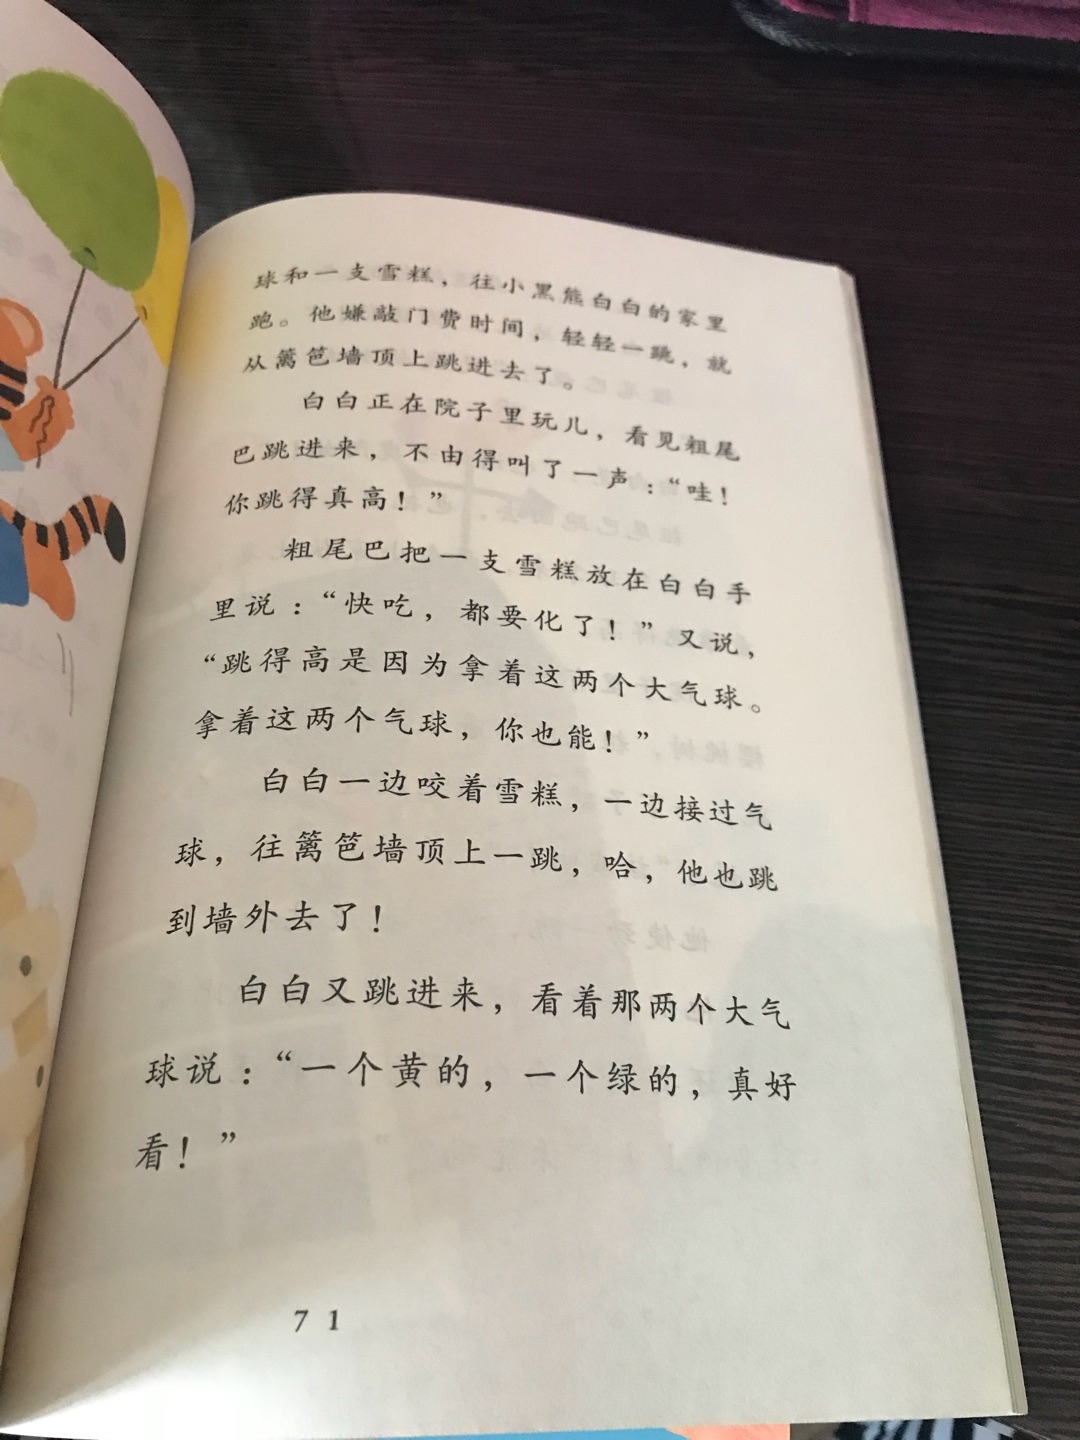 球和一支雪糕，往小黑熊白白的家里
跑。他嫌敲门费时间，轻轻一跳，就
从篱笆墙顶上跳进去了。
白白正在院子里玩儿，看见粗尾
巴跳进来，不由得叫了一声：“哇！
你跳得真高！”
粗尾巴把一支雪糕放在白白手
里说：“快吃，都要化了！”又说，
“跳得高是因为拿着这两个大气球。
拿着这两个气球，你也能！”
白白一边咬着雪糕，一边接过气
球，往篱笆墙顶上一跳，哈，他也跳
到墙外去了！
白白又跳进来，看着那两个大气
球说：“一个黄的，一个绿的，真好
看！”
71